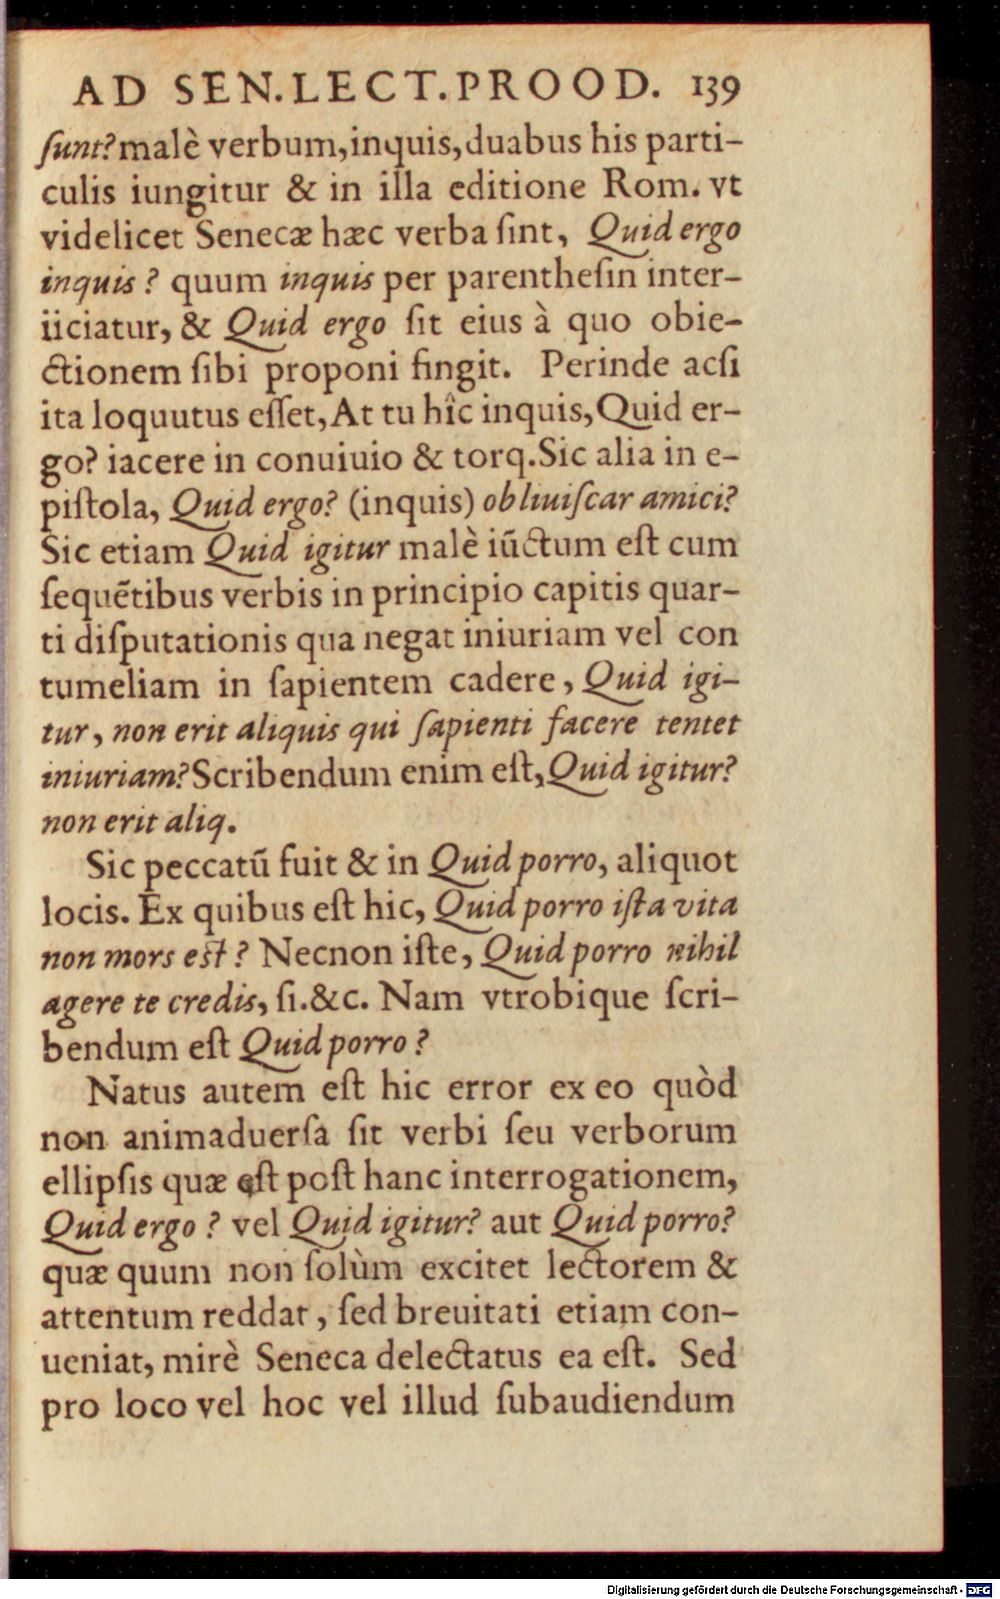 AD SEN.LECT.PROOD. 139
ſunt? malè verbum,inquis,duabus his parti-
culis iungitur & in illa editione Rom. vt
videlicet Senecæ hæc verba ſint, Quid ergo
inquis? quum inquis per parentheſin inter-
iiciatur, & Quid ergo ſit eius à quo obie-
ctionem ſibi proponi fingit. Perinde acſi
ita loquutus eſſet, At tu hîc inquis, Quid er-
go? iacere in conuiuio & torq. Sic alia in e-
piſtola, Quid ergo? (inquis) obliuiſcar amici?
Sic etiam Quid igitur malè iũctum eſt cum
ſequẽtibus verbis in principio capitis quar-
ti diſputationis qua negat iniuriam vel con
tumeliam in ſapientem cadere, Quid igi-
tur, non erit aliquis qui ſapienti facere tentet
iniuriam? Scribendum enim eſt, Quid igitur?
non erit aliq.
Sic peccatũ fuit & in Quid porro, aliquot
locis. Ex quibus eſt hic, Quid porro iſta vita
non mors eſt? Necnon iſte, Quid porro nihil
agere te credis, ſi.&c. Nam vtrobique ſcri-
bendum eſt Quid porro?
Natus autem eſt hic error ex eo quòd
non animaduerſa ſit verbi ſeu verborum
ellipſis quæ eſt poſt hanc interrogationem,
Quid ergo? vel Quid igitur? aut Quid porro?
quæ quum non ſolùm excitet lectorem &
attentum reddat, ſed breuitati etiam con-
ueniat, mirè Seneca delectatus ea eſt. Sed
pro loco vel hoc vel illud ſubaudiendum
Digitalisierung gefördert durch die Deutsche Forschungsgemeinschaft - DFG